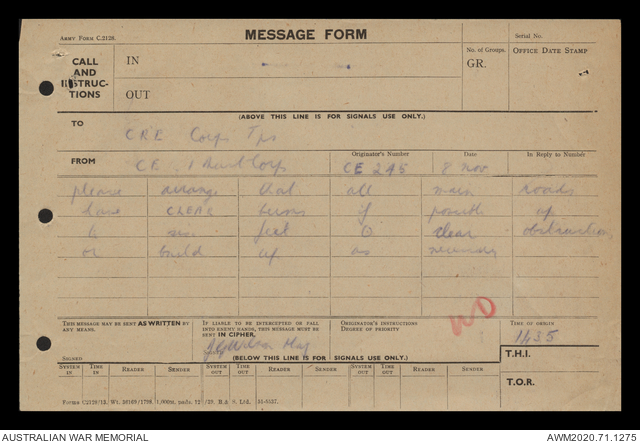 ARMY FORM C.2128.
MESSAGE FORM
Serial No.
CALL AND INSTRUC- TIONS
IN
OUT
No. of Groups.
GR.
OFFICE DATE STAMP
(ABOVE THIS LINE IS FOR SIGNALS USE ONLY.)
TO
CRE Corps Tps
FROM Originator's Number Date In Reply to Number
CE 1 Aust Corps CE 245 8 Nov
please arrange that all main roads
have CLEAR berms if possible up
to six feet clear obstructions
or build up as necessary
WD
THIS MESSAGE MAY BE SENT AS WRITTEN BY ANY MEANS.
IF LIABLE TO BE INTERCEPTED OR FALL INTO ENEMY HANDS, THIS MESSAGE MUST BE SENT IN CIPHER.
ORIGINATOR'S INSTRUCTIONS DEGREE OF PRIORITY
TIME OF ORIGIN
1435
SIGNED
Wilson Maj
(BELOW THIS LINE IS FOR SIGNALS USE ONLY.)
T.H.I.
SYSTEM IN TIME IN READER SENDER SYSTEM OUT TIME OUT READER SENDER SYSTEM OUT TIME OUT READER SENDER
T.O.R.
AUSTRALIAN WAR MEMORIAL
AWM2020.71.1275